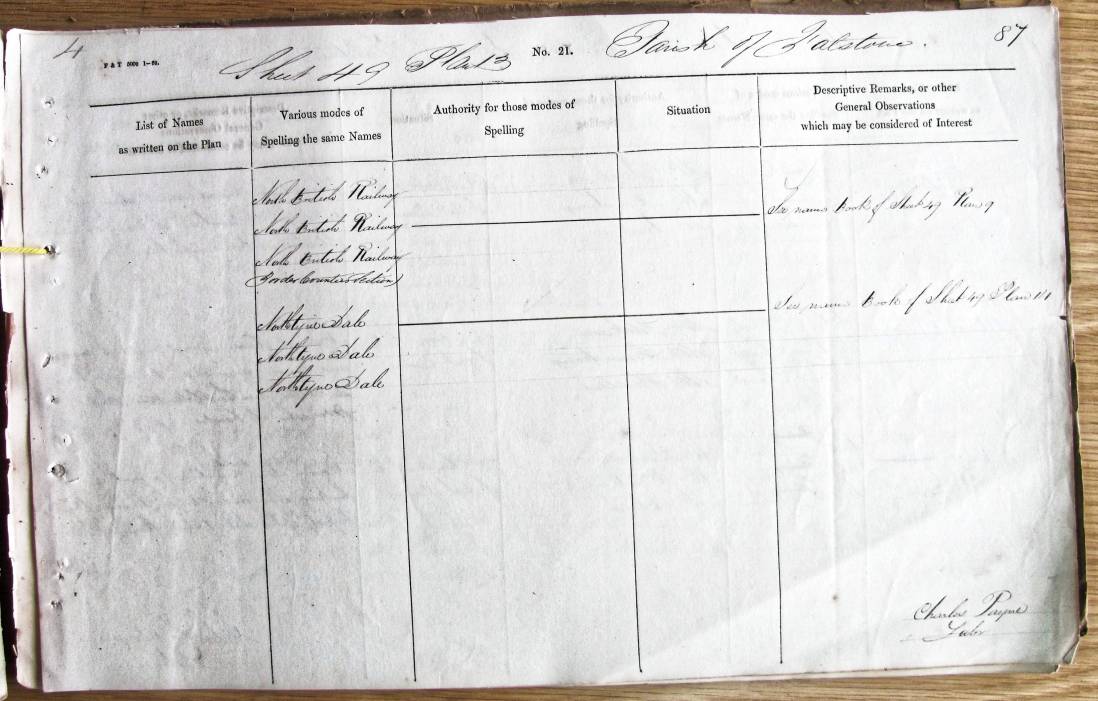 4
87
P & T 5000 1-59.
Sheet 49 Plan 13
No. 21.
Parish of Falstone.
List of Names
as written on the Plan
Various modes of
Spelling the same Names
Authority for those modes of
Spelling
Situation
Descriptive Remarks, or other
General Observations
which may be considered of Interest
North British Railway
See name Book of Sheet 49 Plan 9
North British Railway
North British Railway
(Border Counties Section)
See name Book of Sheet 49 Plan
Northtyne Dale
Northtyne Dale
Northtyne Dale
Charles Payne